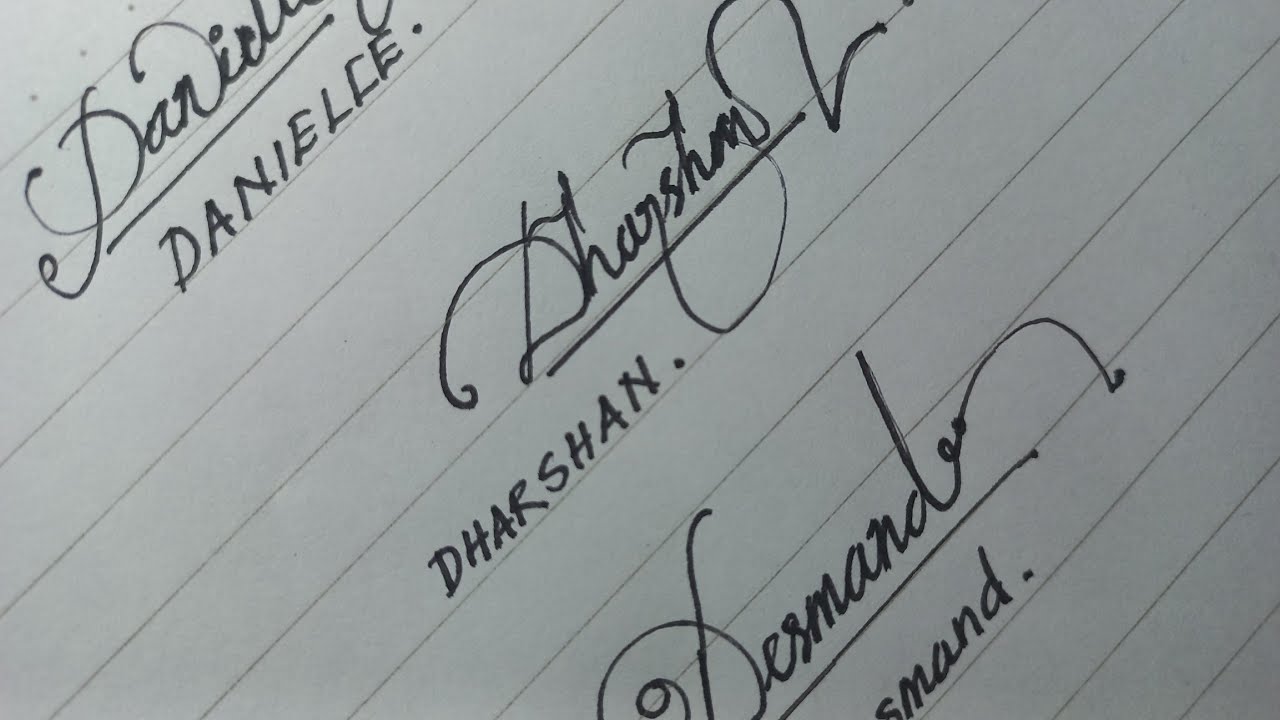 Danielle
DANIELLE.
Dharshan
DHARSHAN.
Desmand
smand.